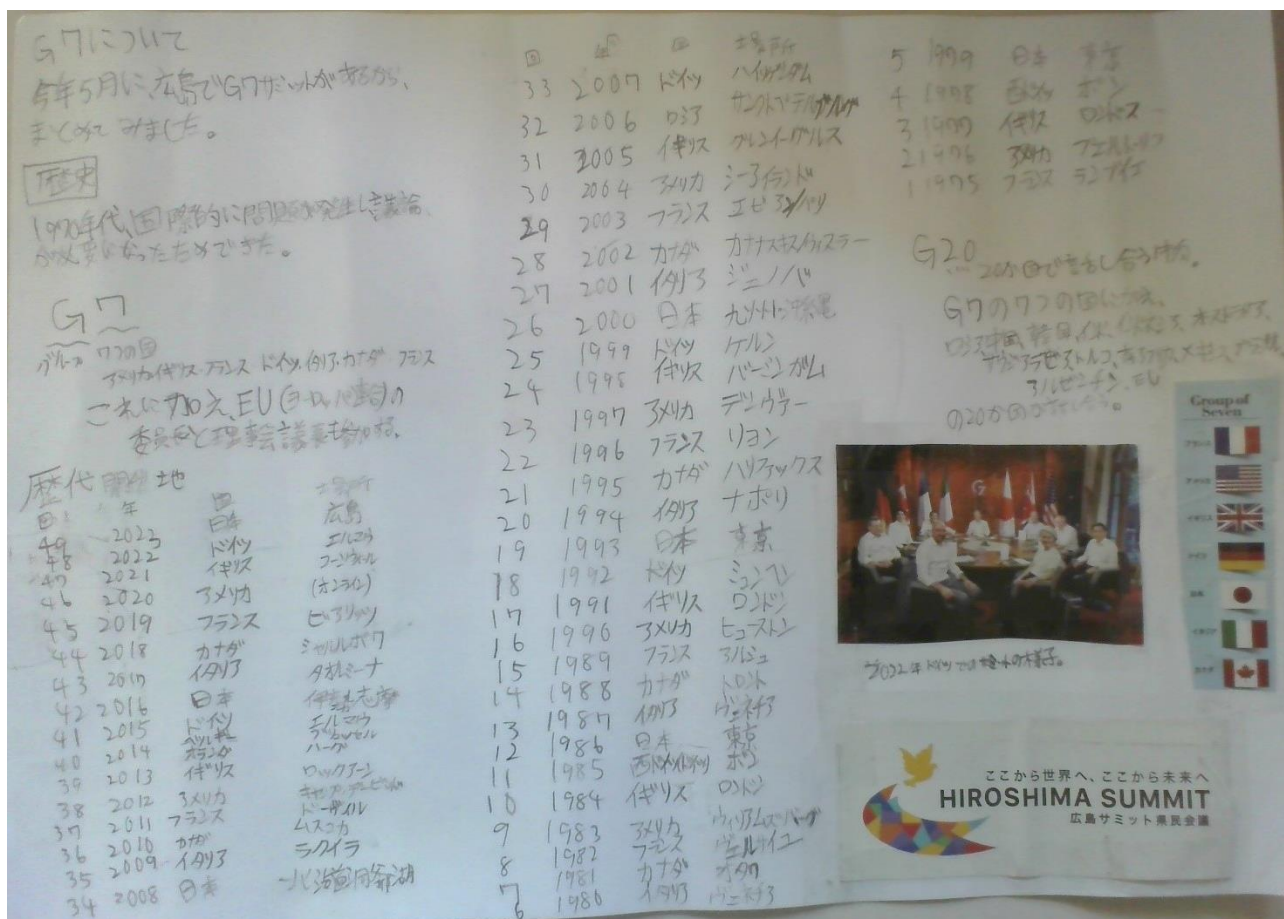 G7について
今年5月に、広島でG7サミットがあるから、
まとめてみました。
歴史
1970年代、国際的に問題が発生し、議論
が必要になったためできた。
G7
グループ 7つの国
アメリカ イギリス フランス ドイツ イタリア カナダ フランス
これに加え、EU(ヨーロッパ連合)の
委員長と理事会議長も参加する。
歴代開催地
回 年 国 場所
49 2023 日本 広島
48 2022 ドイツ エルマウ
47 2021 イギリス コーンウォール
46 2020 アメリカ (オンライン)
45 2019 フランス ビアリッツ
44 2018 カナダ シャルルボワ
43 2017 イタリア タオルミーナ
42 2016 日本 伊勢志摩
41 2015 ドイツ エルマウ
40 2014 ベルギー ブリュッセル
オランダ ハーグ
39 2013 イギリス ロックアーン
38 2012 アメリカ キャンプ・デービッド
37 2011 フランス ドーヴィル
36 2010 カナダ ムスコカ
35 2009 イタリア ラクイラ
34 2008 日本 北海道洞爺湖
回 年 国 場所
33 2007 ドイツ ハイリゲンダム
32 2006 ロシア サンクトペテルブルグ
31 2005 イギリス グレンイーグルス
30 2004 アメリカ シーアイランド
29 2003 フランス エビアン
28 2002 カナダ カナナスキス
27 2001 イタリア ジェノバ
26 2000 日本 九州・沖縄
25 1999 ドイツ ケルン
24 1998 イギリス バーミンガム
23 1997 アメリカ デンヴァー
22 1996 フランス リヨン
21 1995 カナダ ハリファックス
20 1994 イタリア ナポリ
19 1993 日本 東京
18 1992 ドイツ ミュンヘン
17 1991 イギリス ロンドン
16 1990 アメリカ ヒューストン
15 1989 フランス アルシュ
14 1988 カナダ トロント
13 1987 イタリア ヴェネチア
12 1986 日本 東京
11 1985 西ドイツ ボン
10 1984 イギリス ロンドン
9 1983 アメリカ ウィリアムズバーグ
8 1982 フランス ヴェルサイユ
7 1981 カナダ オタワ
6 1980 イタリア ヴェネチア
5 1979 日本 東京
4 1978 西ドイツ ボン
3 1977 イギリス
2 1976 アメリカ
1 1975 フランス ランブイエ
G20
20か国で話し合う
G7の7つの国に加え、
ロシア、中国、韓国、インド、インドネシア、オーストラリア、
サウジアラビア、トルコ、南アフリカ、メキシコ、ブラジル
アルゼンチン、EU
の20か国が話し合う。
Group of
Seven
フランス
アメリカ
イギリス
ドイツ
日本
イタリア
カナダ
2022年ドイツでのサミットの様子。
ここから世界へ、ここから未来へ
HIROSHIMA SUMMIT
広島サミット県民会議